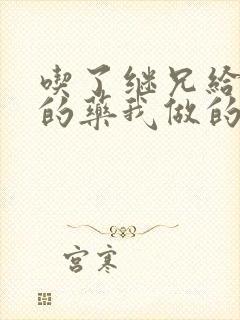 喫了继兄给
的藥我做的
宫寒